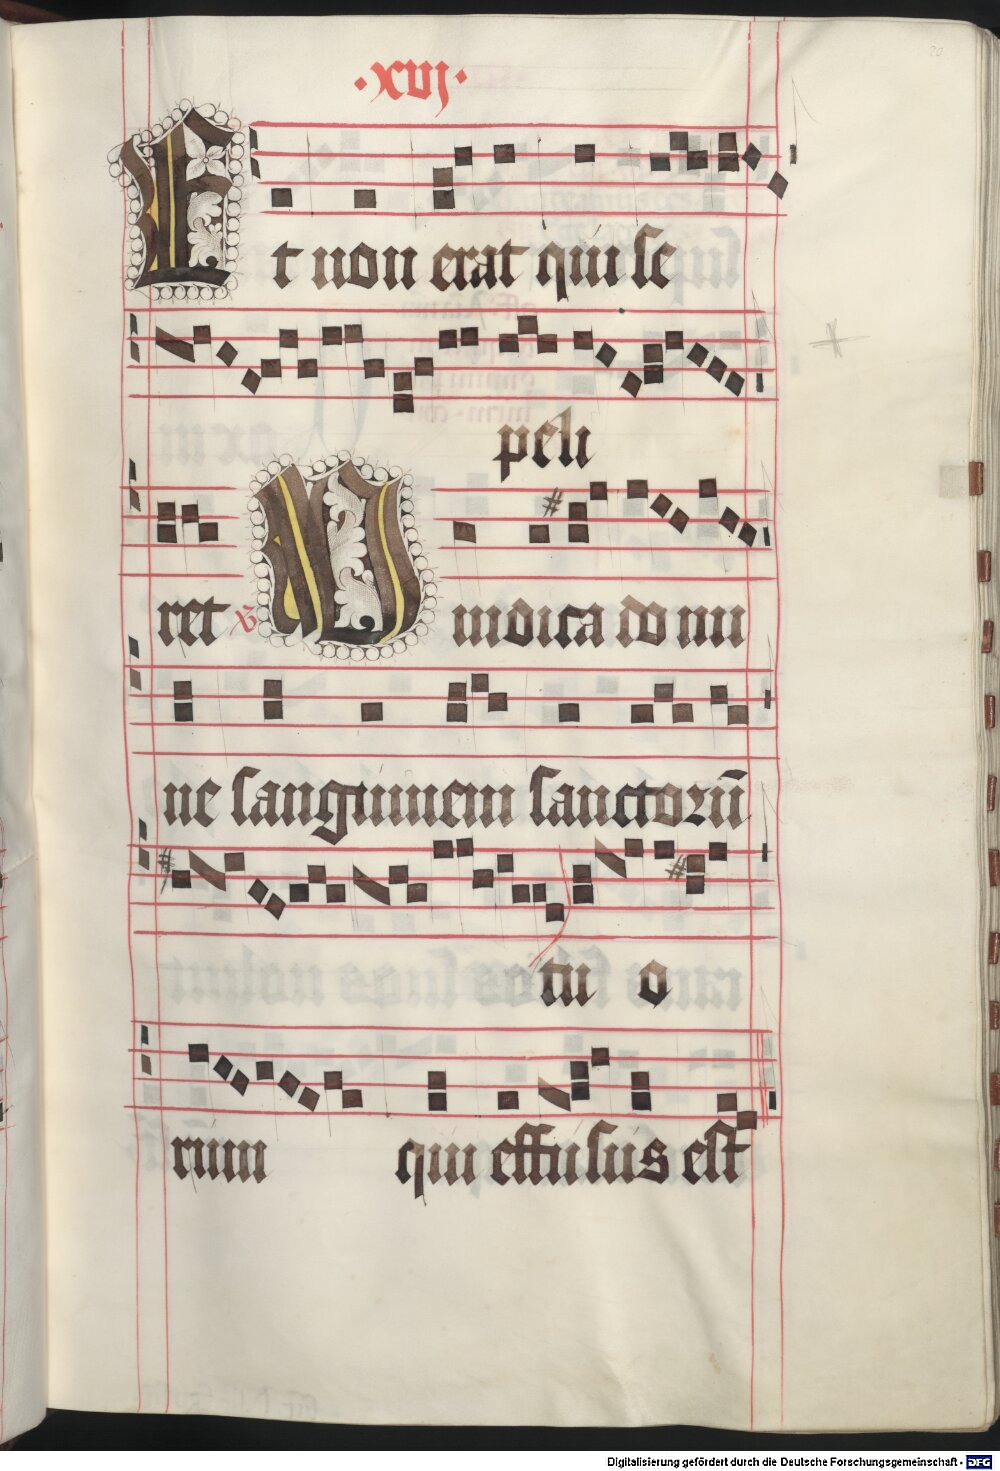 ·xvij·
Et non erat qui se
peli
ret v̄ Vindica domi
ne sanguinem sanctorū
tu o
rum qui effusus est
Digitalisierung gefördert durch die Deutsche Forschungsgemeinschaft - DFG